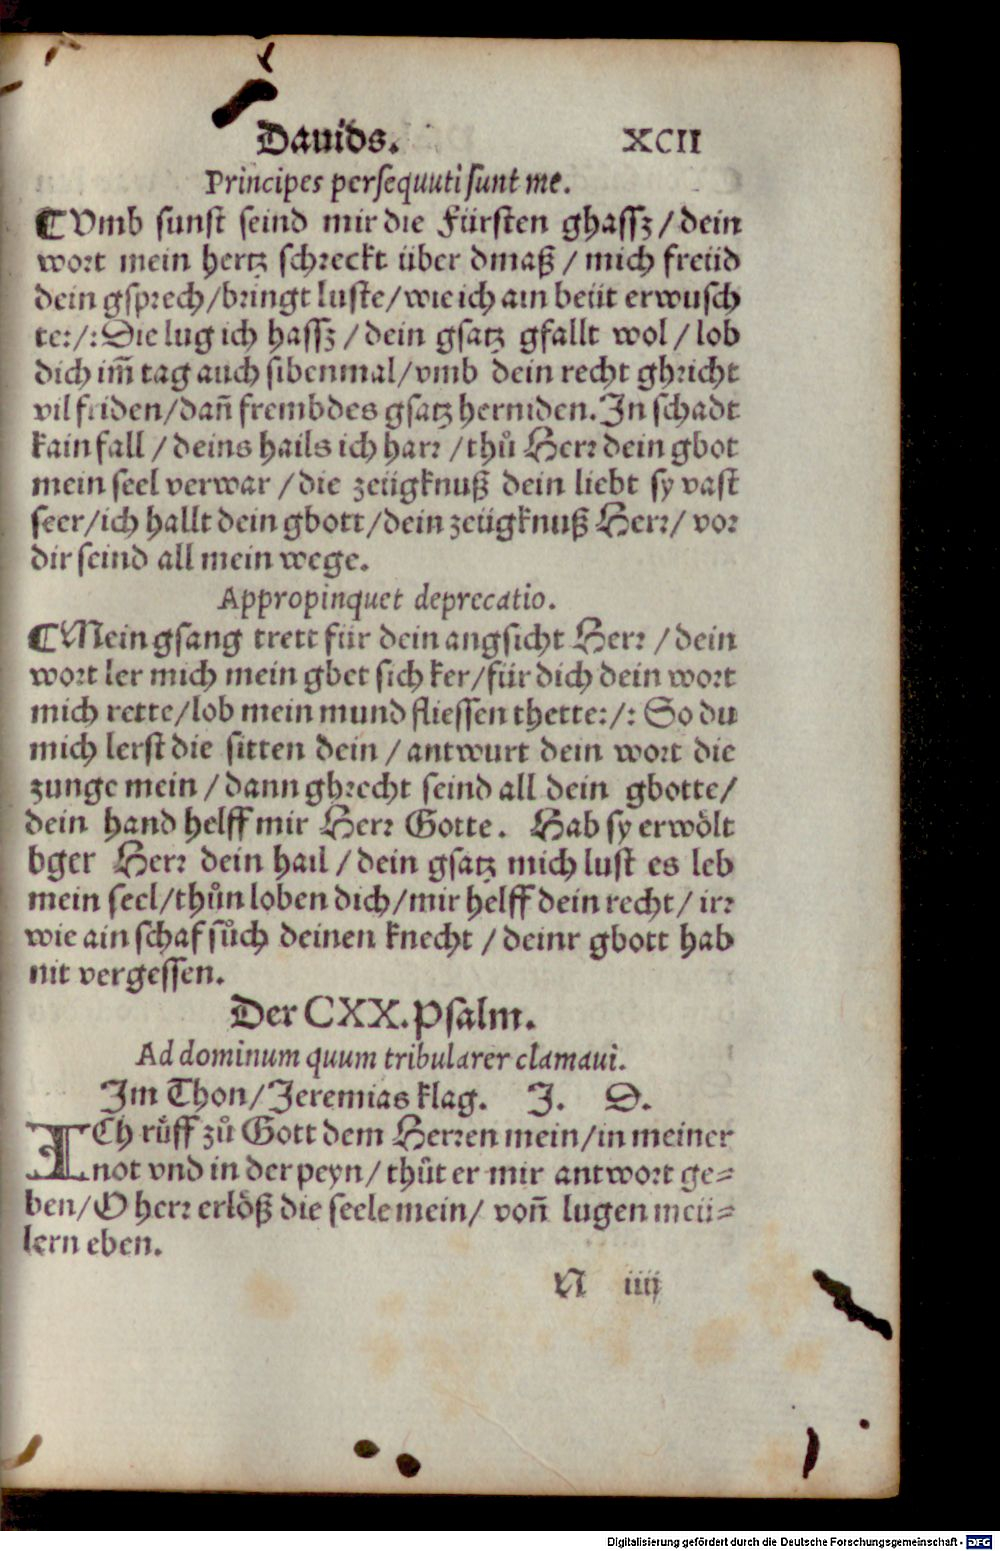 Dauids. XCII
Principes persequuti sunt me.
¶Vmb sunst seind mir die Fürsten ghassz / dein
wort mein hertz schreckt über dmaß / mich freüd
dein gsprech/bringt luste/wie ich ain beüt erwusch
te:/:Die lug ich hassz / dein gsatz gfallt wol / lob
dich im̃ tag auch sibenmal/vmb dein recht ghricht
vil friden/dañ frembdes gsatz herniden. In schadt
kain fall / deins hails ich harr /thů Herr dein gbot
mein seel verwar / die zeügknuß dein liebt sy vast
seer/ich hallt dein gbott/dein zeügknuß Herr/ vor
dir seind all mein wege.
Appropinquet deprecatio.
¶Mein gsang trett für dein angsicht Herr / dein
wort ler mich mein gbet sich ker/für dich dein wort
mich rette/lob mein mund fliessen thette:/: So du
mich lerst die sitten dein / antwurt dein wort die
zunge mein / dann ghrecht seind all dein gbotte/
dein hand helff mir Herr Gotte. Hab sy erwölt
bger Herr dein hail / dein gsatz mich lust es leb
mein seel/thůn loben dich/mir helff dein recht/ irr
wie ain schaf sůch deinen knecht / deinr gbott hab
nit vergessen.
Der CXX. Psalm.
Ad dominum quum tribularer clamaui.
Im Thon/Jeremias klag. J. D.
ICh růff zů Gott dem Herren mein/in meiner
not vnd in der peyn/ thůt er mir antwort ge=
ben/O herr erlöß die seele mein/ voñ lugen meü=
lern eben.
N iiij
Digitalisierung gefördert durch die Deutsche Forschungsgemeinschaft - DFG